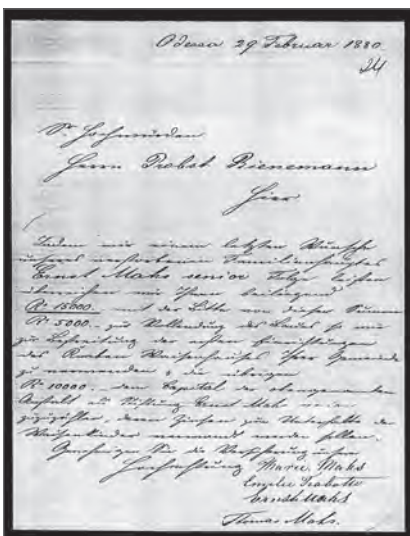 Odessa 29 Februar 1880.
24
Sr. Hochwürden
Herrn Probst Bienemann
Hier
Indem wir einem letzten Wunsche
unseres verstorbenen Familienhauptes
Ernst Mahs senior Folge leisten
überreichen wir Ihnen beiliegend
15000. mit der Bitte von dieser Summe
5000. zur Vollendung des Baues so wie
zur Bestreitung der ersten Einrichtungen
des Knaben Waisenhauses Ihrer Gemeinde
zu verwenden, die übrigen
10000. dem Capital der
Anstalt als Stiftung Ernst Mahs
deren Zinsen zum Unterhalte der
Waisenkinder verwandt werden sollen.
Genehmigen Sie die Versicherung unserer
Hochachtung Marie Mahs
Ernst Mahs
Thomas Mahs.